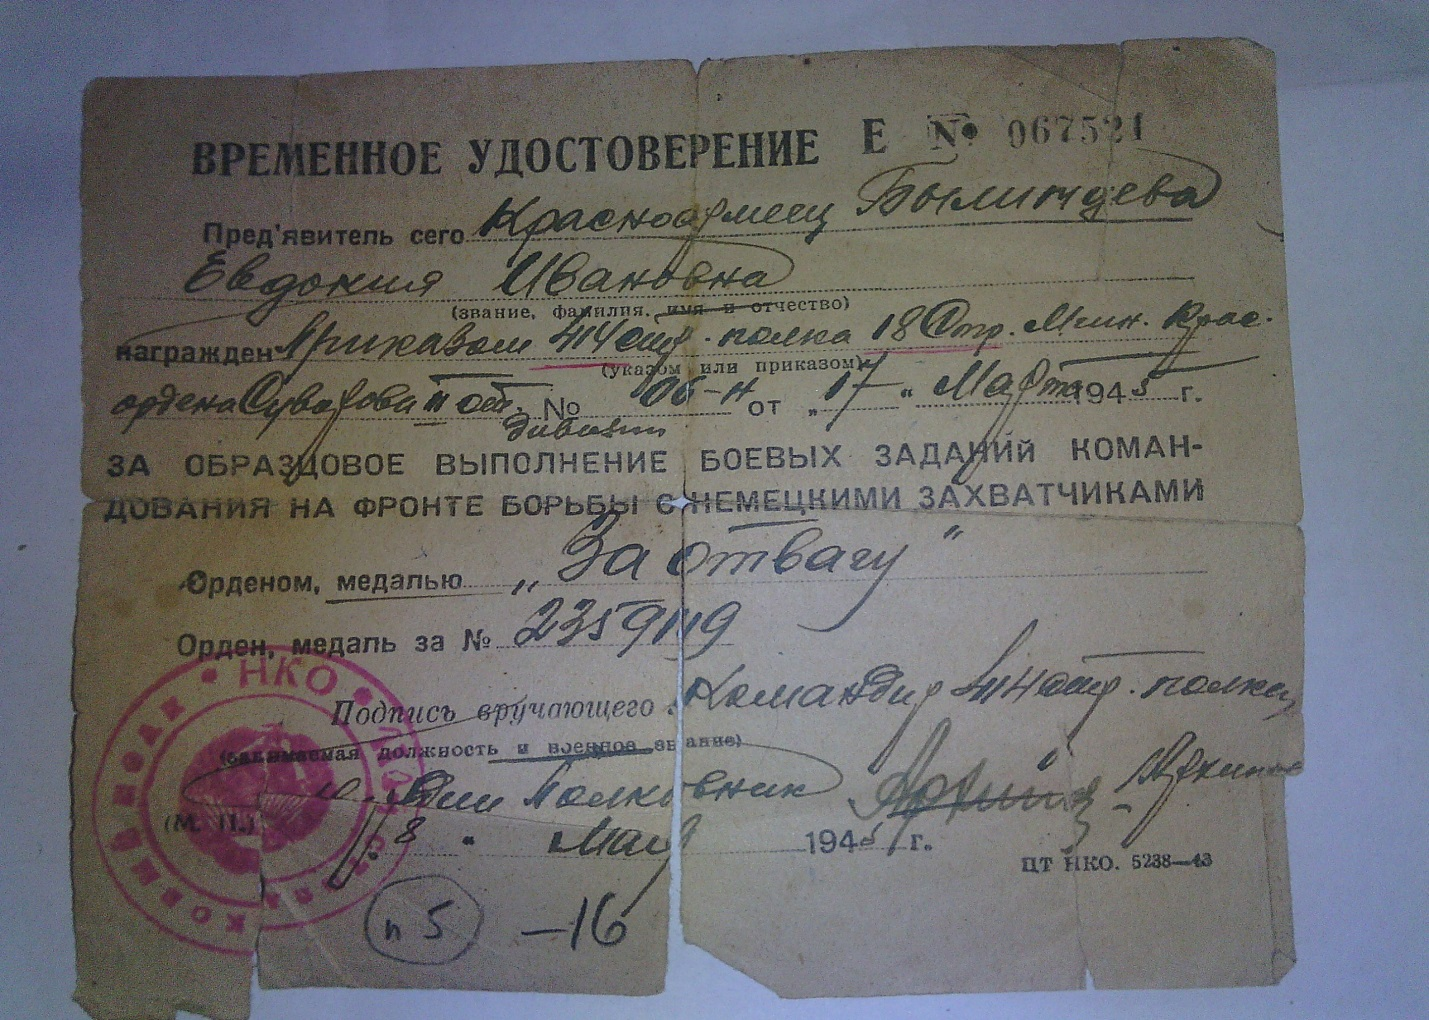 ВРЕМЕННОЕ УДОСТОВЕРЕНИЕ Е № 067521
Пред'явитель сего Красноармеец Былинцева
Евдокия Ивановна
(звание, фамилия, имя и отчество)
награжден Приказом 414 стр. полка 18 Стр. Мгин. Крас.
(указом или приказом)
ордена Суворова II ст. № 06-н от „17“ Марта 1945 г.
дивизии
ЗА ОБРАЗЦОВОЕ ВЫПОЛНЕНИЕ БОЕВЫХ ЗАДАНИЙ КОМАН-
ДОВАНИЯ НА ФРОНТЕ БОРЬБЫ С НЕМЕЦКИМИ ЗАХВАТЧИКАМИ
Орденом, медалью „За отвагу“
Орден, медаль за № 2359119
Подпись вручающего Командир 414 стр. полка
(занимаемая должность и военное звание)
Полковник
(М. П.) 8 “ Мая 1945 г.
ЦТ НКО. 5238—43
НКО
п 5 —16